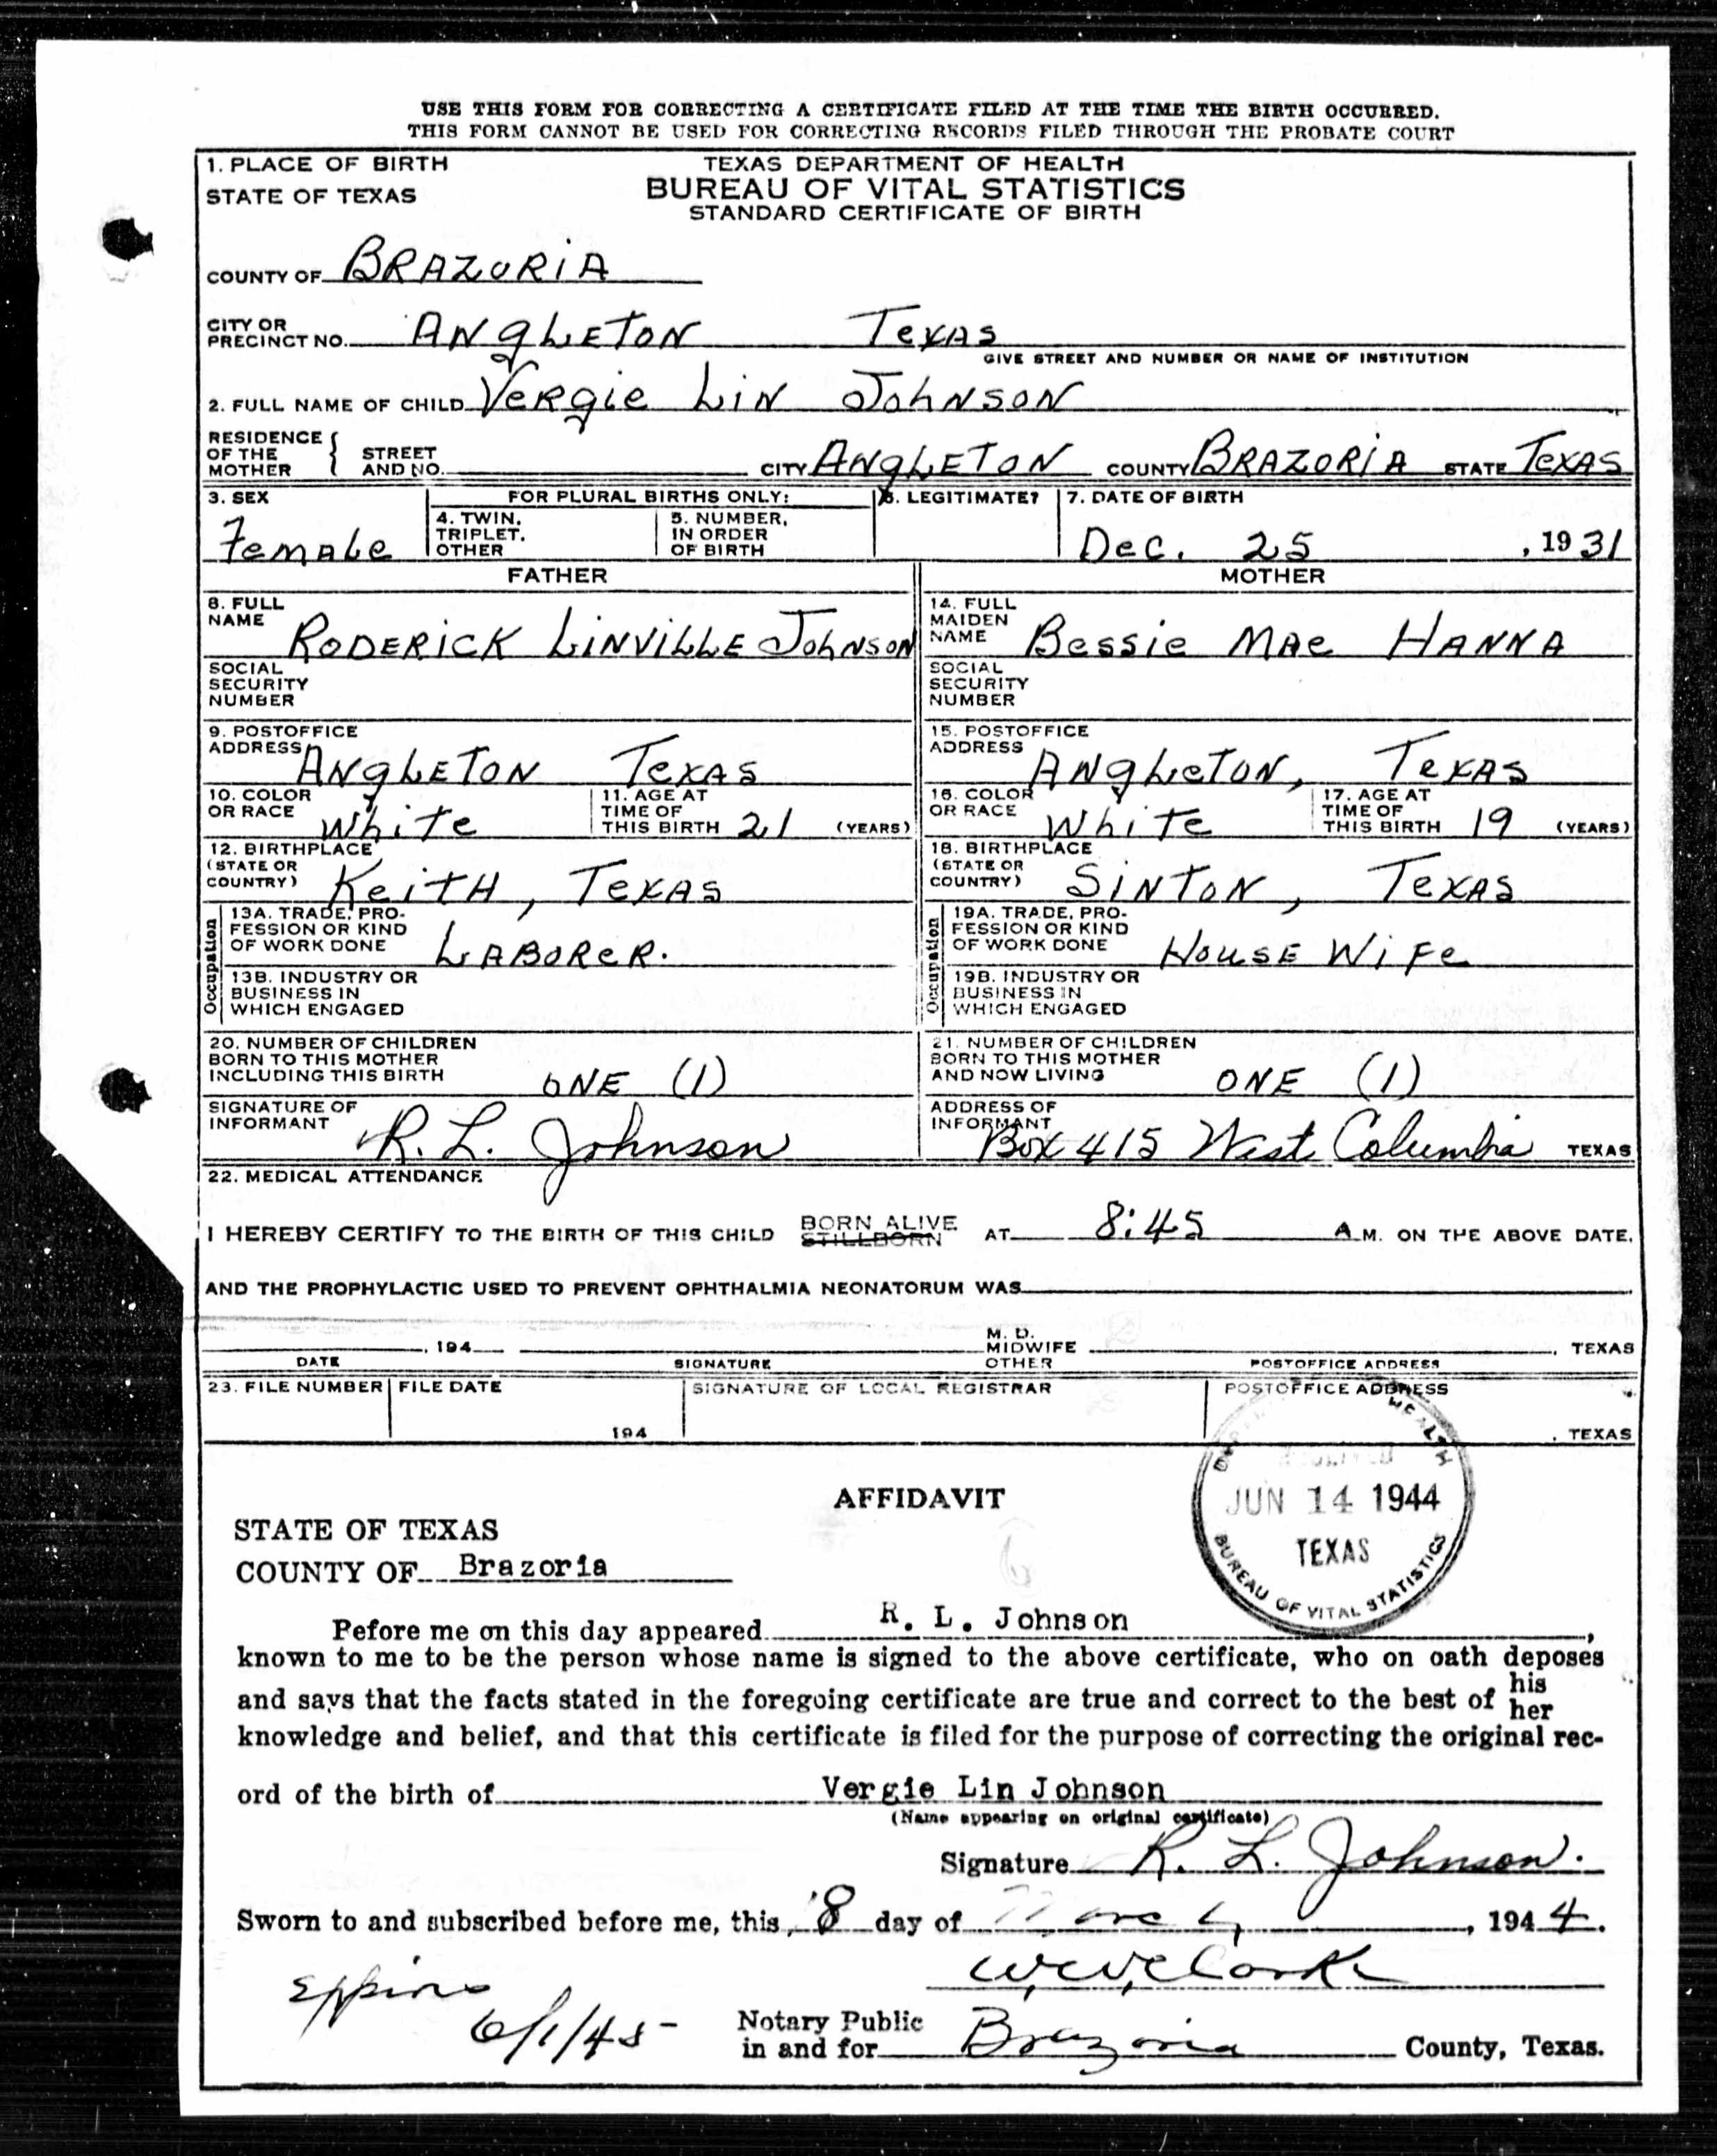 USE THIS FORM FOR CORRECTING A CERTIFICATE FILED AT THE TIME THE BIRTH OCCURRED.
THIS FORM CANNOT BE USED FOR CORRECTING RECORDS FILED THROUGH THE PROBATE COURT
1. PLACE OF BIRTH
STATE OF TEXAS
TEXAS DEPARTMENT OF HEALTH
BUREAU OF VITAL STATISTICS
STANDARD CERTIFICATE OF BIRTH
COUNTY OF BRAZORIA
CITY OR PRECINCT NO. ANGLETON TEXAS
GIVE STREET AND NUMBER OR NAME OF INSTITUTION
2. FULL NAME OF CHILD Vergie Lin Johnson
RESIDENCE OF THE MOTHER { STREET AND NO. CITY ANGLETON COUNTY BRAZORIA STATE TEXAS
3. SEX
Female
FOR PLURAL BIRTHS ONLY:
4. TWIN, TRIPLET, OTHER
5. NUMBER, IN ORDER OF BIRTH
6. LEGITIMATE?
7. DATE OF BIRTH
Dec. 25, 1931
FATHER
8. FULL NAME RODERICK LINVILLE JOHNSON
SOCIAL SECURITY NUMBER
9. POSTOFFICE ADDRESS ANGLETON TEXAS
10. COLOR OR RACE White
11. AGE AT TIME OF THIS BIRTH 21 (YEARS)
12. BIRTHPLACE (STATE OR COUNTRY) KEITH, TEXAS
Occupation
13A. TRADE, PROFESSION OR KIND OF WORK DONE LABORER.
13B. INDUSTRY OR BUSINESS IN WHICH ENGAGED
MOTHER
14. FULL MAIDEN NAME Bessie Mae HANNA
SOCIAL SECURITY NUMBER
15. POSTOFFICE ADDRESS ANGLETON, TEXAS
16. COLOR OR RACE White
17. AGE AT TIME OF THIS BIRTH 19 (YEARS)
18. BIRTHPLACE (STATE OR COUNTRY) SINTON, TEXAS
Occupation
19A. TRADE, PROFESSION OR KIND OF WORK DONE HOUSE WIFE
19B. INDUSTRY OR BUSINESS IN WHICH ENGAGED
20. NUMBER OF CHILDREN BORN TO THIS MOTHER INCLUDING THIS BIRTH ONE (1)
21. NUMBER OF CHILDREN BORN TO THIS MOTHER AND NOW LIVING ONE (1)
SIGNATURE OF INFORMANT R. L. Johnson
ADDRESS OF INFORMANT Box 415 West Columbia TEXAS
22. MEDICAL ATTENDANCE
I HEREBY CERTIFY TO THE BIRTH OF THIS CHILD BORN ALIVE STILLBORN AT 8:45 A.M. ON THE ABOVE DATE,
AND THE PROPHYLACTIC USED TO PREVENT OPHTHALMIA NEONATORUM WAS
, 194 M. D. MIDWIFE OTHER , TEXAS
DATE SIGNATURE POSTOFFICE ADDRESS
23. FILE NUMBER FILE DATE SIGNATURE OF LOCAL REGISTRAR POSTOFFICE ADDRESS
194 , TEXAS
HEALTH
JUN 14 1944
TEXAS
BUREAU OF VITAL STATISTICS
AFFIDAVIT
STATE OF TEXAS
COUNTY OF Brazoria
Before me on this day appeared R. L. Johnson,
known to me to be the person whose name is signed to the above certificate, who on oath deposes
and says that the facts stated in the foregoing certificate are true and correct to the best of his her
knowledge and belief, and that this certificate is filed for the purpose of correcting the original rec-
ord of the birth of Vergie Lin Johnson
(Name appearing on original certificate)
Signature R. L. Johnson.
Sworn to and subscribed before me, this 8 day of March, 1944.
6/1/45
Notary Public in and for Brazoria County, Texas.